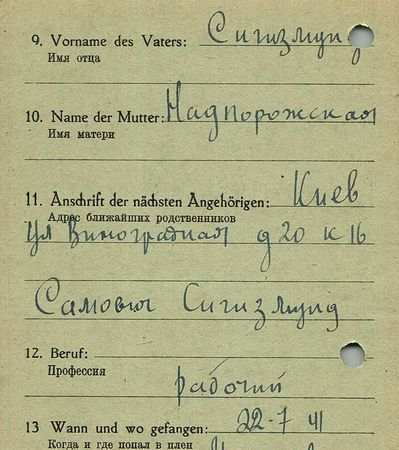 9. Vorname des Vaters: Сигизмунд
Имя отца
10. Name der Mutter: Надпорожская
Имя матери
11. Anschrift der nächsten Angehörigen: Киев
Адрес ближайших родственников
ул Виноградная д 20 к 16
Сигизмунд
12. Beruf:
Профессия
рабочий
13 Wann und wo gefangen: 22-7 41
Когда и где попал в плен